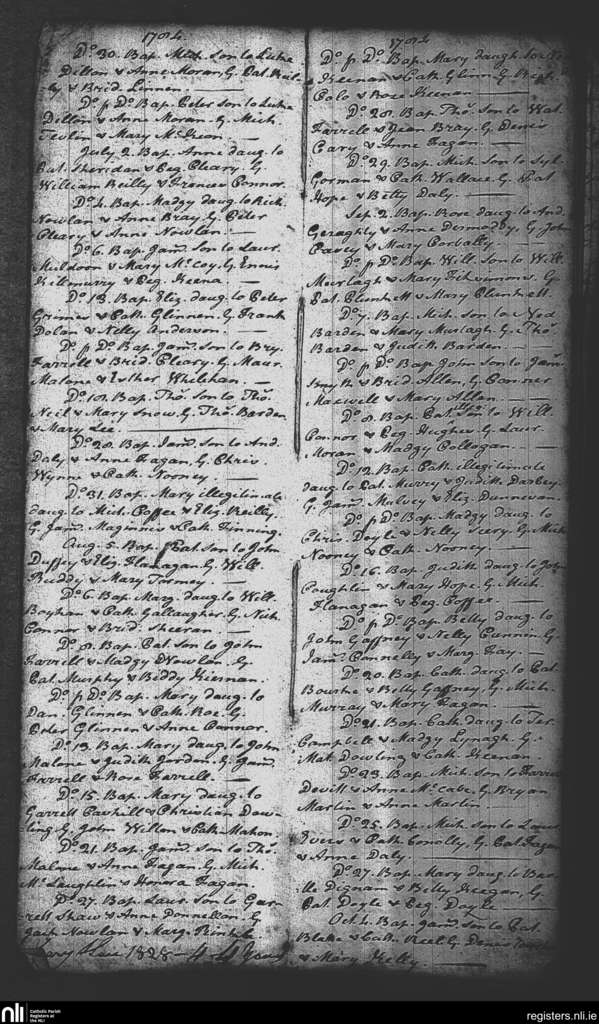 Do 30. Bap. Mich. Son to Luke
Dillon & Anne Moran, G. Pat. Reil-
ly & Brid. Linnen.
Do p Do Bap. Peter Son to Luke
Dillon & Anne Moran. G. Mich.
& Mary
July 2. Bap. Anne daug. to
Pat. Sheridan & Peg. Cleary. G.
William Reilly & Frances Connor.
Do 4. Bap. Madgy daug. to Rich.
Nowlan & Anne Bray, G. Peter
Cleary & Anne Nowlan.
Do 6. Bap. Jams. Son to Laur.
Muldoon & Mary McCoy, G. Ennis
& Peg. Keena.
Do 13. Bap. Eliz. daug. to Peter
Grimes & Cath. Glinnen, G. Frank
Dolan & Nelly Anderson.
Do p Do Bap. Jams. Son to Bry.
Farrell & Brid. Cleary, G. Maur.
Malone & Esther Whelehan.
Do 18. Bap. Thos. Son to Thos.
Neil & Mary Snow, G. Thos. Barden
& Mary Lee.
Do 28. Bap. Jams. Son to And.
Daly & Anne Fagan, G. Chris.
Wynne & Cath. Nooney.
Do 31. Bap. Mary illegitimate
daug. to Mich. Coffee & Eliz. Reilly.
G. Jams. Maginnis & Cath. Finning.
Aug. 5. Bap. Pat. Son to John
Duffey & Eliz. Flanagan. G. Will.
Buddy & Mary Tormey.
Do 6. Bap. Marg. daug. to Will.
Boyhan & Cath. Gallaugher. G. Nich.
Connor & Brid. Sheeran.
Do 8. Bap. Pat. Son to John
Farrell & Madgy Nowlan. G.
Pat. Murphy & Biddy Kiernan.
Do p Do Bap. Mary daug. to
Dan. Glinnen & Cath. Roe. G.
Peter Glinnen & Anne Connor.
Do 13. Bap. Mary daug. to John
Malone & Judith Jordan, G. Jams.
Farrell & Rose Farrell.
Do 15. Bap. Mary daug. to
Garrett & Christian Dow-
ling G. John & Cath. Mahon.
Do 21. Bap. Jams. Son to Thos.
& Anne Fagan, G. Mich.
McLaughlin & Honora Fagan.
Do 27. Bap. Laur. Son to Gar-
rett Shaw & Anne Donnellan. G
Nowlan & Marg.
1828 44 years
Do p Do Bap. Mary daugh. to
Keenan & Cath. Glinn, G.
& Rose Keenan
Do 28. Bap. Thos. Son to Wat.
Farrell & Jean Bray. G. Denis
Cary & Anne Fagan.
Do 29. Bap. Mich. Son to Syl.
Gorman & Cath. Wallace. G. Pat
Hope & Betty Daly.
Sep. 2. Bap. Rose daug. to And.
Geraghty & Anne Dermody, G. John
Casey & Mary Corbally.
Do p Do Bap. Will. Son to Will.
Murtagh & Mary Fitzsimons. G.
Pat. Plunkett & Mary Plunkett.
Do 7. Bap. Mich. Son to Ned
Barden & Mary Murtagh. G. Thos.
Barden & Judith Barden.
Do p Do Bap. John Son to Jams.
Smyth & Brid. Allen, G. Connor
Maxwell & Mary Allen.
Do 8. Bap. Pat. to Will.
Connor & Peg. Hughes, G. Laur.
Moran & Madgy
Do 12. Bap. Cath. illegitimate
daug. to Pat. Murry & Judith Darbey.
G. Jams. Mulvey & Eliz. Dunnevan.
Do p Do Bap. Madgy daug. to
Chris. Doyle & Nelly Seery. G. Mich
Nooney & Cath. Nooney.
Do 16. Bap. Judith daug. to John
Coughlin & Mary Hope. G. Mich.
Flanagan & Peg. Coffee.
Do p Do Bap. Betty daug. to
John Gaffney & Nelly Cunnin. G.
Jams. Connelly & Marg. Fay.
Do 20. Bap. Cath. daug. to Pat.
Bourke & Betty Gaffney, G. Mich.
Murray & Mary Fagan.
Do 21. Bap. Cath. daug. to Ter.
Campbell & Madgy Lynagh. G.
Mat. Dowling & Cath. Keenan.
Do 23. Bap. Mich. Son to
Devitt & Anne McCabe, G. Bryan
Martin & Anne Martin
Do 25. Bap. Mich. Son to Laur.
Ivers & Cath. Conolly, G. Pat. Fagan
& Anne Daly.
Do 27. Bap. Mary daug. to
Dignam & Betty Keegan, G.
Pat. Doyle & Peg. Doyle
Oct. 4. Bap. Jams. Son to Pat.
Blake & Cath. G. Denis
& Mary Kelly.
nli
Catholic Parish
Registers at
the NLI
registers.nli.ie